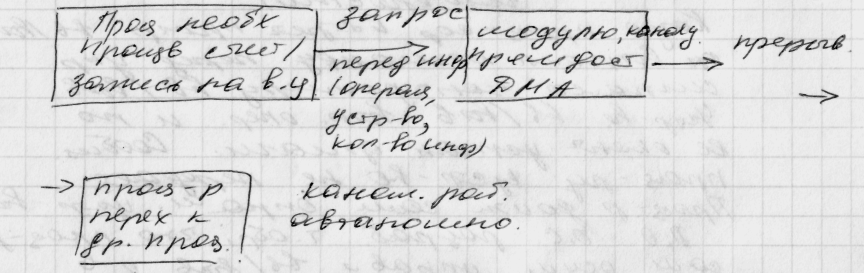 Проц необх
произв счит/
запись на в.у
запрос
перед инф
(операц,
устр-во,
кол-во инф)
модулю, каналу
предост
ДМА
прерыв.
проц-р
перех к
др. проц.
канал. раб.
автаномно.